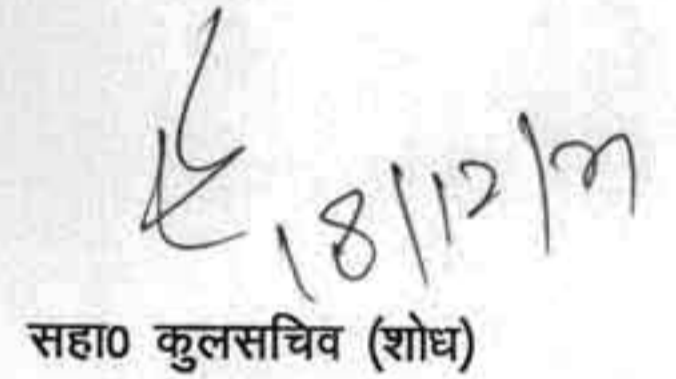 18/12/21
सहा0 कुलसचिव (शोध)